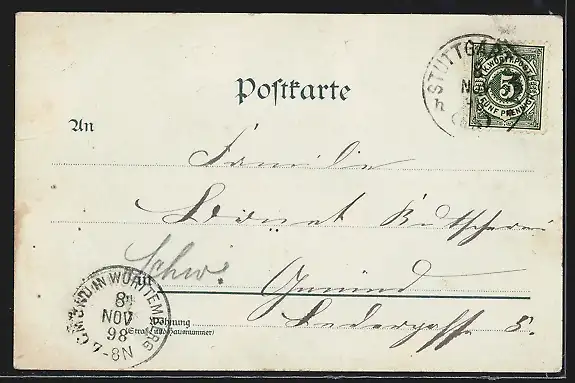 STUTTGART
NOV
K. WÜRTT. POST
5
FÜNF PFENNIG
Postkarte
An
Familie
Schw.
Gmünd
in
Wohnung
(Straße und Hausnummer)
Ledergasse 8.
GMÜND IN WÜRTTEMBERG
8
NOV
98
7-8N